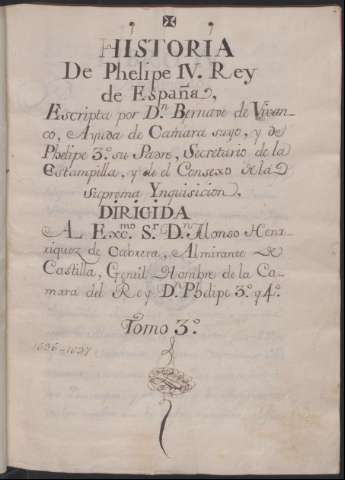 HISTORIA
De Phelipe IV. Rey
de España,
Escripta por D.n Bernave de Vivan-
co, Ayuda de Camara suyo, y de
Phelipe 3.º su Padre, Secretario de la
Estampilla, y de el Consexo de la
Suprema Ynquisicion.
DIRIGIDA
AL Exc.mo S.r D.n Alonso Henr-
riquez de Cabrera, Almirante de
Castilla, Gentil Hombre de la Ca-
mara del Rey D.n Phelipe 3.º y 4.º
Tomo 3.º
1636-1637